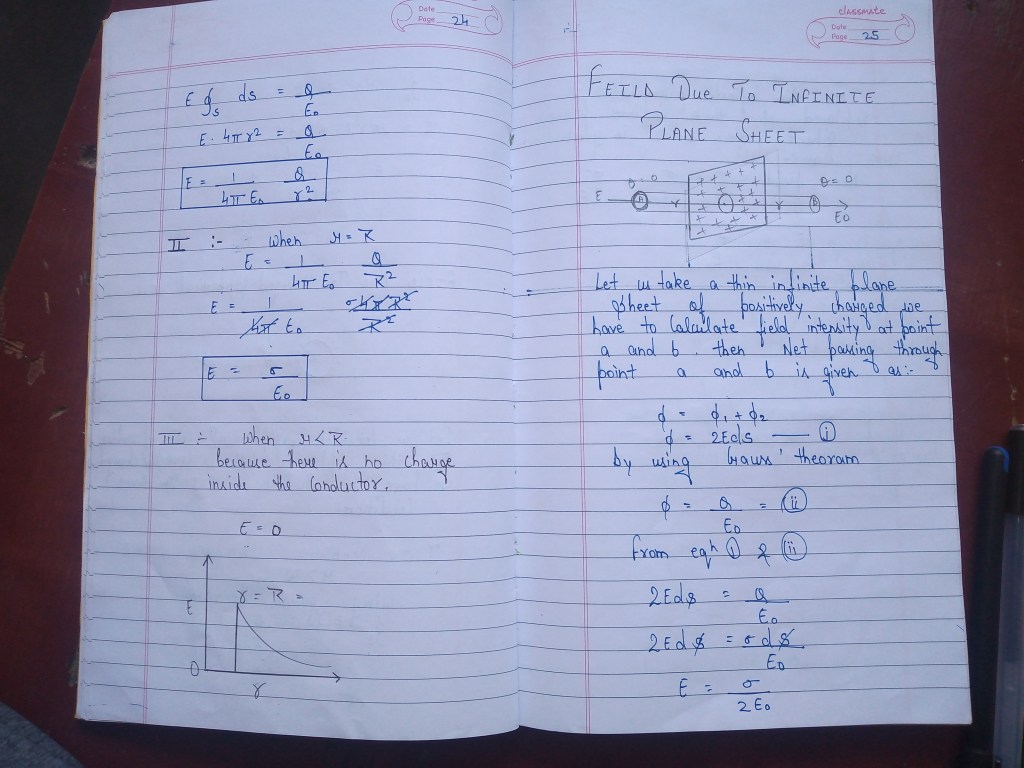 Date
Page 24
E ∮s ds = Q/E₀
E. 4πr² = Q/E₀
E = 1/4πE₀ Q/r²
II :- when r = R
E = 1/4πE₀ Q/R²
E = 1/4πE₀ σ4πR²/R²
E = σ/E₀
III :- when r<R
because there is no charge
inside the conductor.
E = 0
r = R =
E
0
r
classmate
Date
Page 25
FEILD DUE TO INFINITE
PLANE SHEET
θ = 0
θ = 0
E
r
r
E0
Let us take a thin infinite plane
sheet of positively charged we
have to calculate field intensity at point
a and b. then Net passing through
point a and b is given as:-
ϕ = ϕ₁ + ϕ₂
ϕ = 2Eds — (i)
by using Gauss' theoram
ϕ = Q/E0 = (ii)
from eqn (i) & (ii)
2Eds = Q/E₀
2Eds = σds/E0
E = σ/2E₀